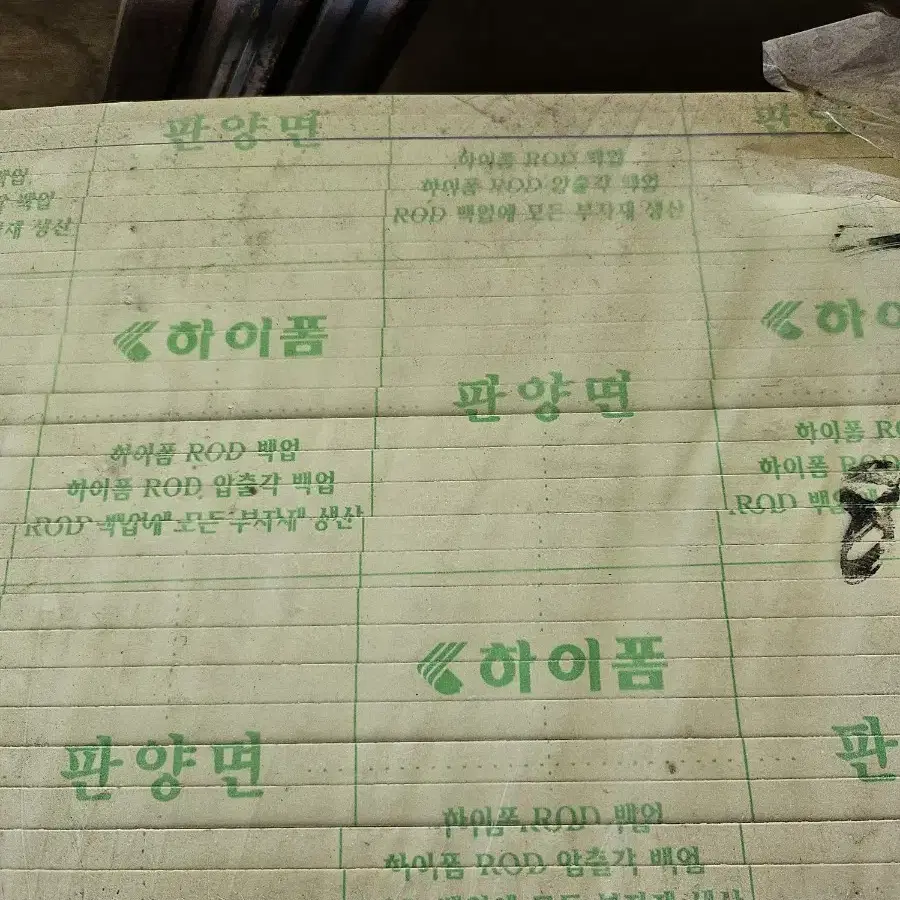 판양면
판양
하이폼 ROD 백업
하이폼 ROD 압출각 백업
ROD 백업에 모든 부자재 생산
백업
백업
생산
하이폼
하이
판양면
하이폼 ROD 백업
하이폼 ROD 압출각 백업
ROD 백업에 모든 부자재 생산
하이폼
하이폼 ROD
ROD 백업에
하이폼
판양면
판
하이폼 ROD 백업
하이폼 ROD 압출각 백업
백업에 모든 부자재 생산